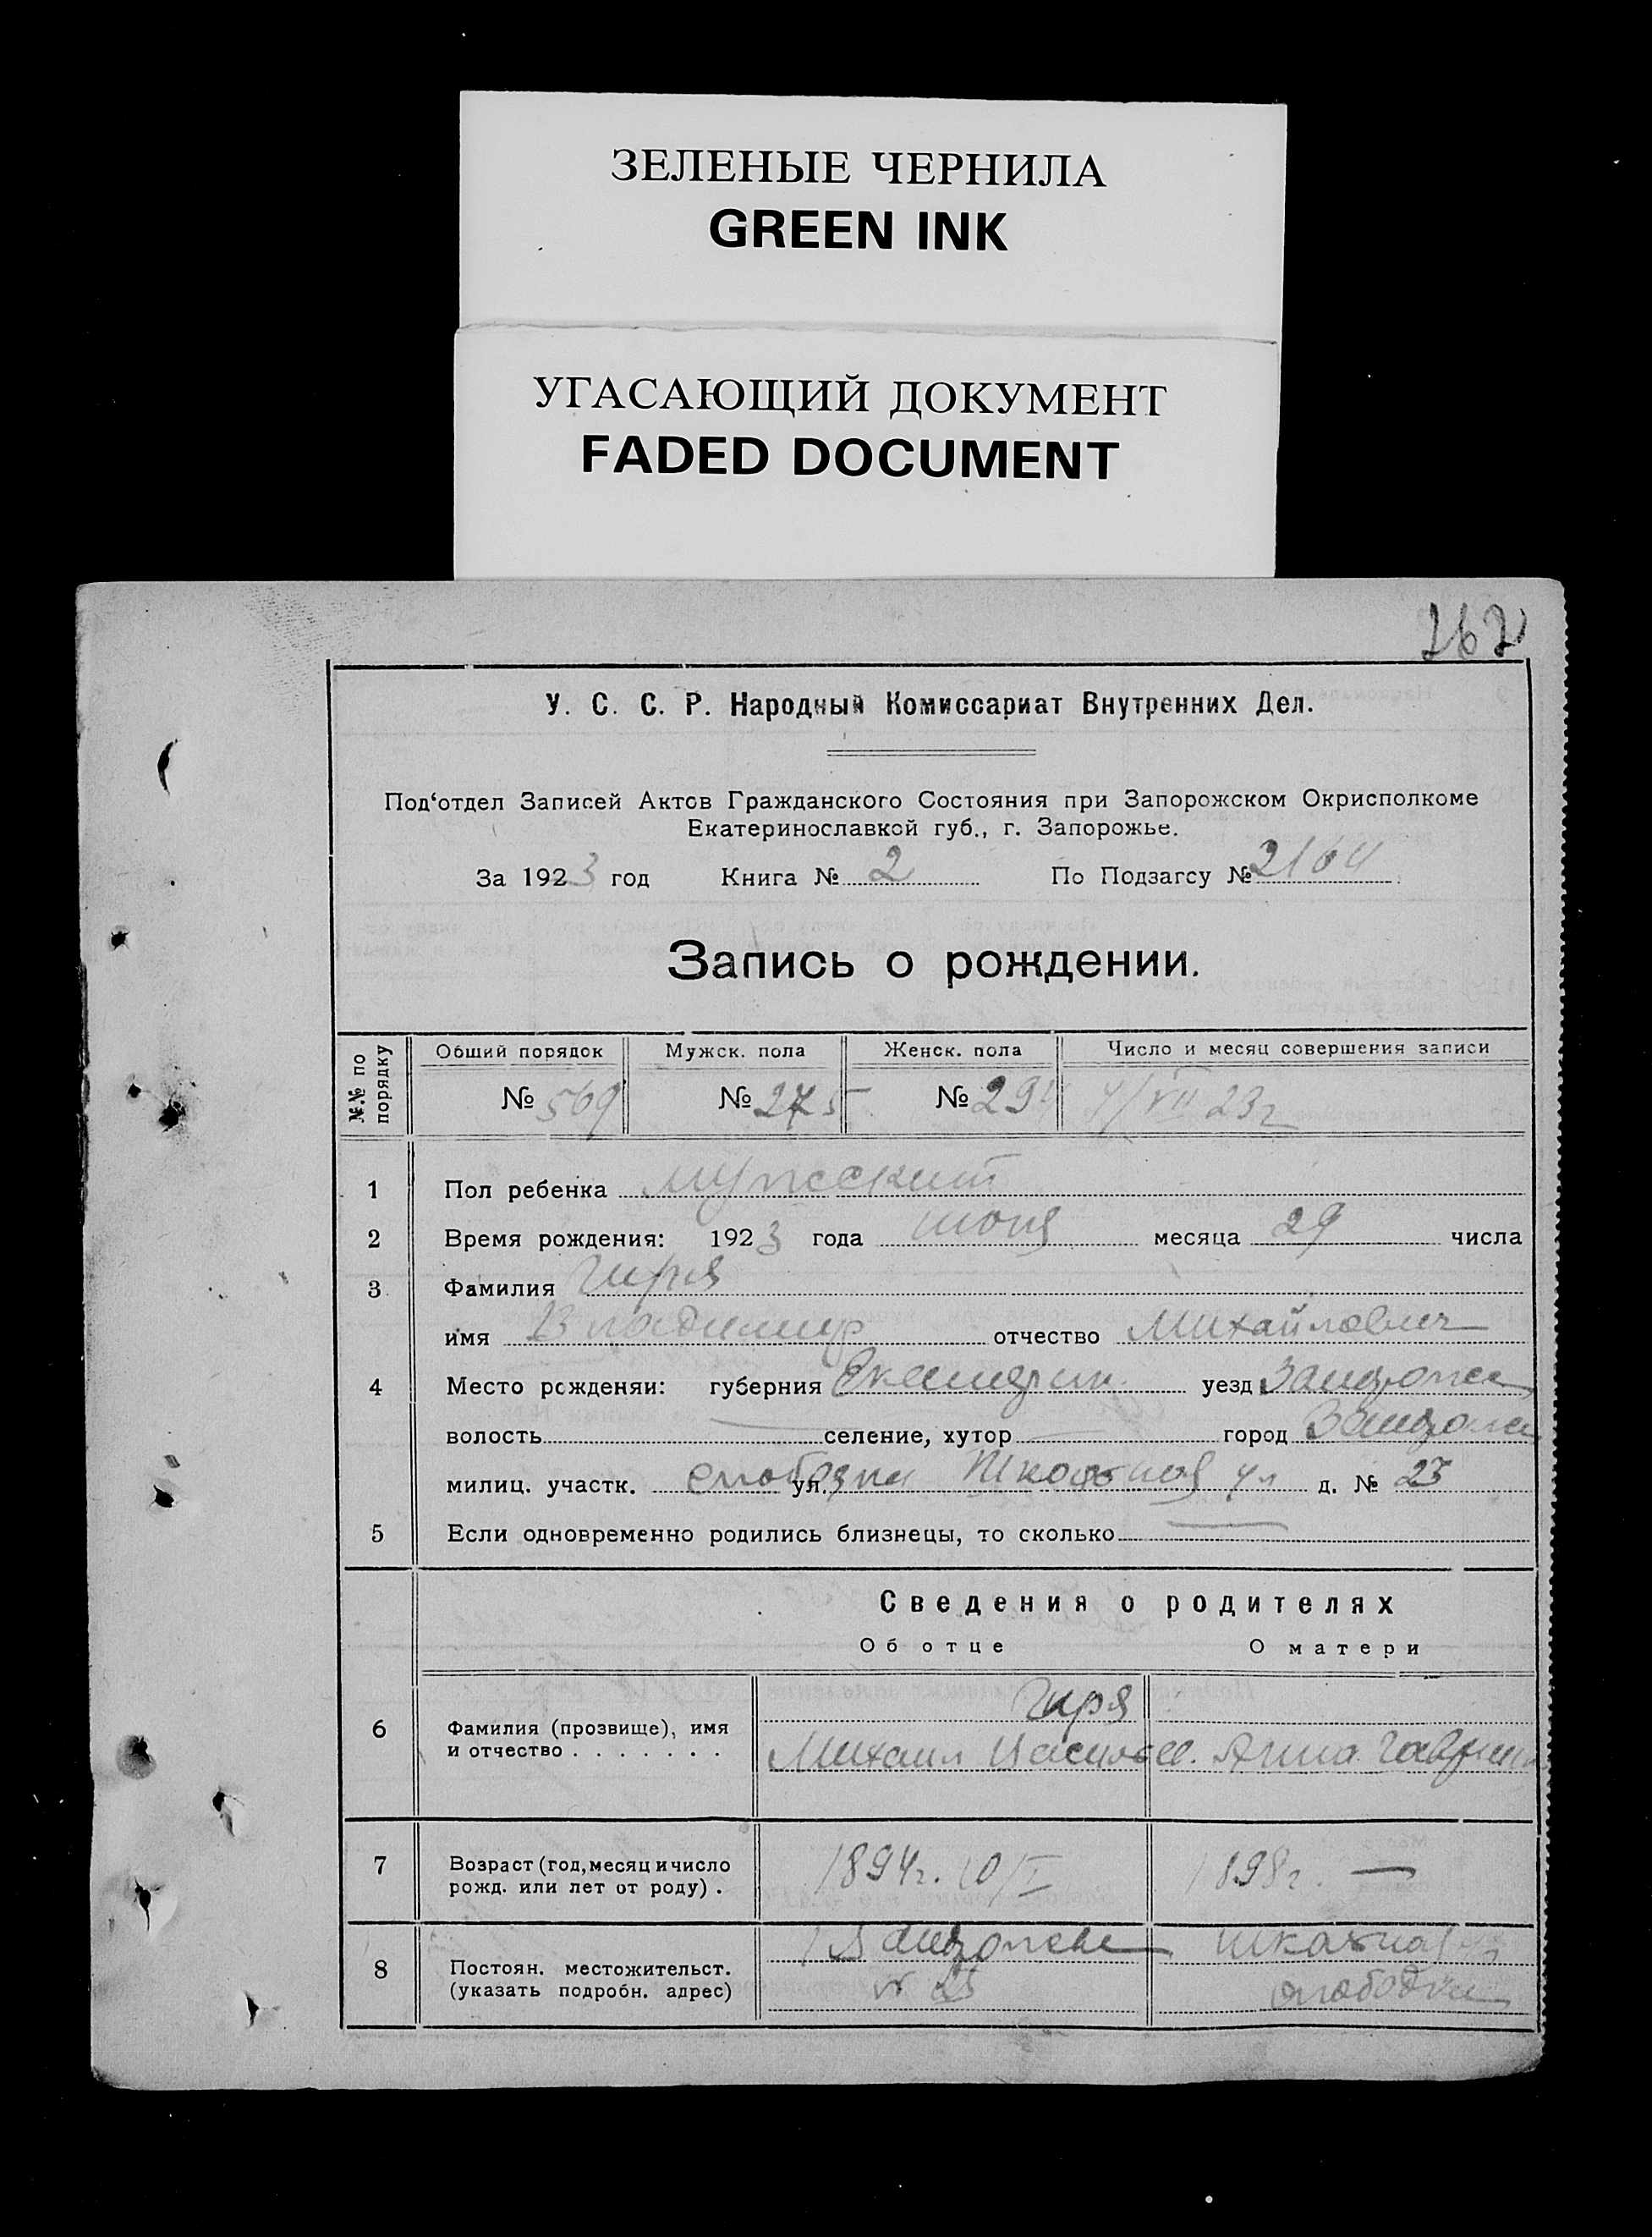 ЗЕЛЕНЫЕ ЧЕРНИЛА
GREEN INK
УГАСАЮЩИЙ ДОКУМЕНТ
FADED DOCUMENT
262
У. С. С. Р. Народный Комиссариат Внутренних Дел.
Под‘отдел Записей Актов Гражданского Состояния при Запорожском Окрисполкоме
Екатеринославкой губ., г. Запорожье.
За 1923 год Книга № 2 По Подзагсу № 2164
Запись о рождении.
№№ по порядку Общий порядок Мужск. пола Женск. пола Число и месяц совершения записи
№ 569 № 275 № 294 4/VII 23 г
1 Пол ребенка мужеский
2 Время рождения: 1923 года июня месяца 29 числа
3 Фамилия Гиря
имя Владимир отчество Михайлович
4 Место рожденяи: губерния Екатерин. уезд Запорож
волость — селение, хутор — город Запорож
милиц. участк. слободка ул. Школьная ул д. № 25
5 Если одновременно родились близнецы, то сколько —
Сведения о родителях
Об отце О матери
Гиря
6 Фамилия (прозвище), имя
и отчество . . . . . . . Михаил Васильев. Анна Гаврил
7 Возраст (год, месяц и число 1894г. 10/I 1898г. —
рожд. или лет от роду) .
8 Постоян. местожительст. Запорожье Школьная ул
(указать подробн. адрес) № 25 слободка